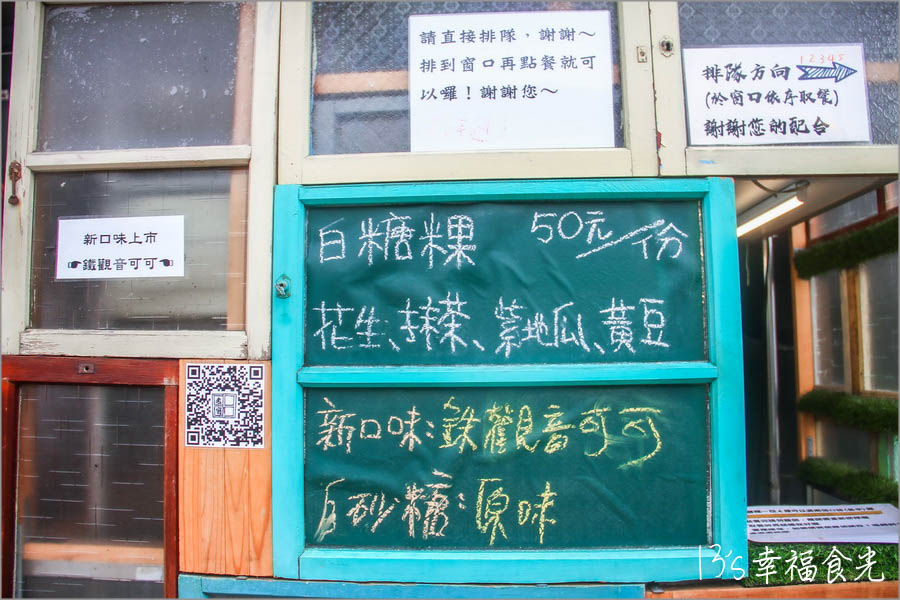 請直接排隊，謝謝～
排到窗口再點餐就可
以囉！謝謝您～
12345
排隊方向
(於窗口依序取餐)
謝謝您的配合
新口味上市
☚鐵觀音可可☛
白糖粿 50元/份
花生、抹茶、紫地瓜、黃豆
新口味:鉄觀音可可
白砂糖:原味
13's幸福食光